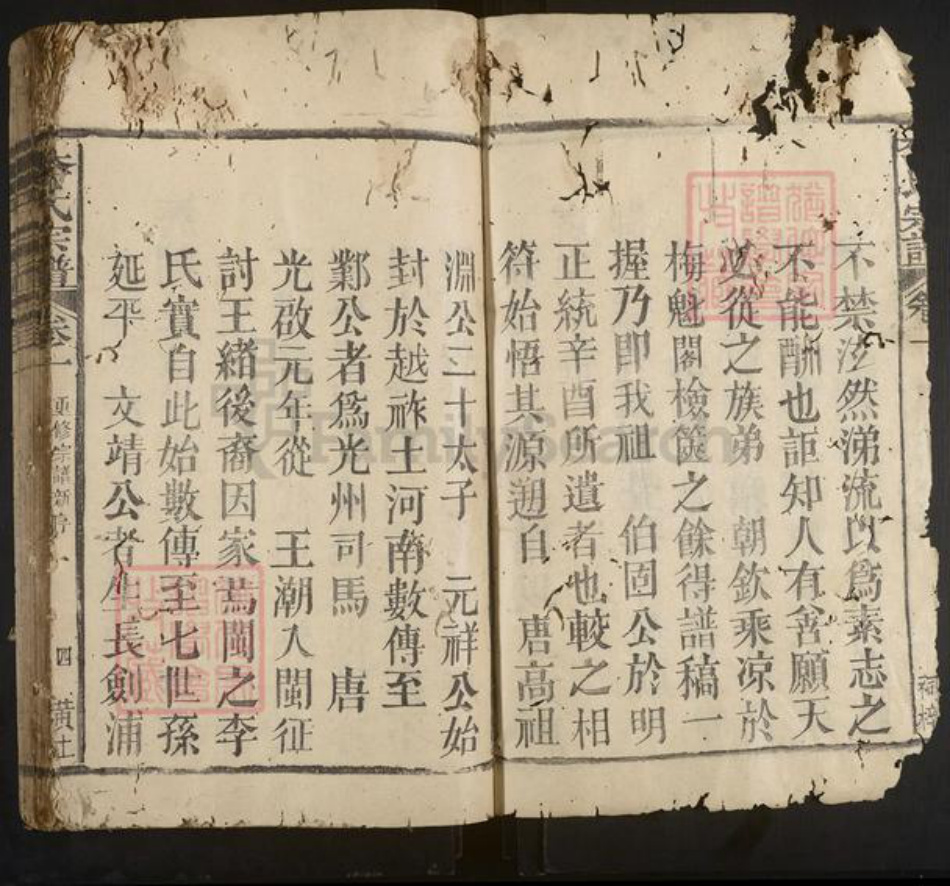 不禁泫然涕流以爲素志之
不能酬也詎知人有舍願天
必從之族弟　朝欽乘凉於
梅魁閣檢篋之餘得譜稿一
握乃即我祖　伯固公於明
正統辛酉所遺者也較之相
符始悟其源遡自　唐高祖
淵公二十太子　元祥公始
封於越祚土河南數傳至
鄴公者爲光州司馬　唐
光啟元年從　王潮入閩征
討王緒後裔因家焉閩之李
氏實自此始數傳至七世孫
延平　文靖公者生長劍浦
李氏宗譜
卷一
重修宗譜新序
四
FamilySearch